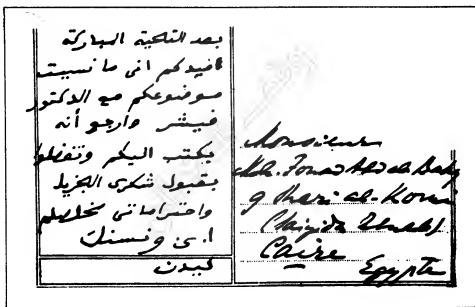 بعد التحية المباركة
افيدكم انى ما نسيت
موضوعكم مع الدكتور
فيشر وارجو أنه
يكتب اليكم وتفضلوا
بقبول شكرى الجزيل
واحتراماتى مخلصكم
ا. ى ونسنك
ليدن
Monsieur
Moh. Fouad Abd al-Baky
9 Shari al-Komi
(Saiyida Zainab)
Caire
Egypte